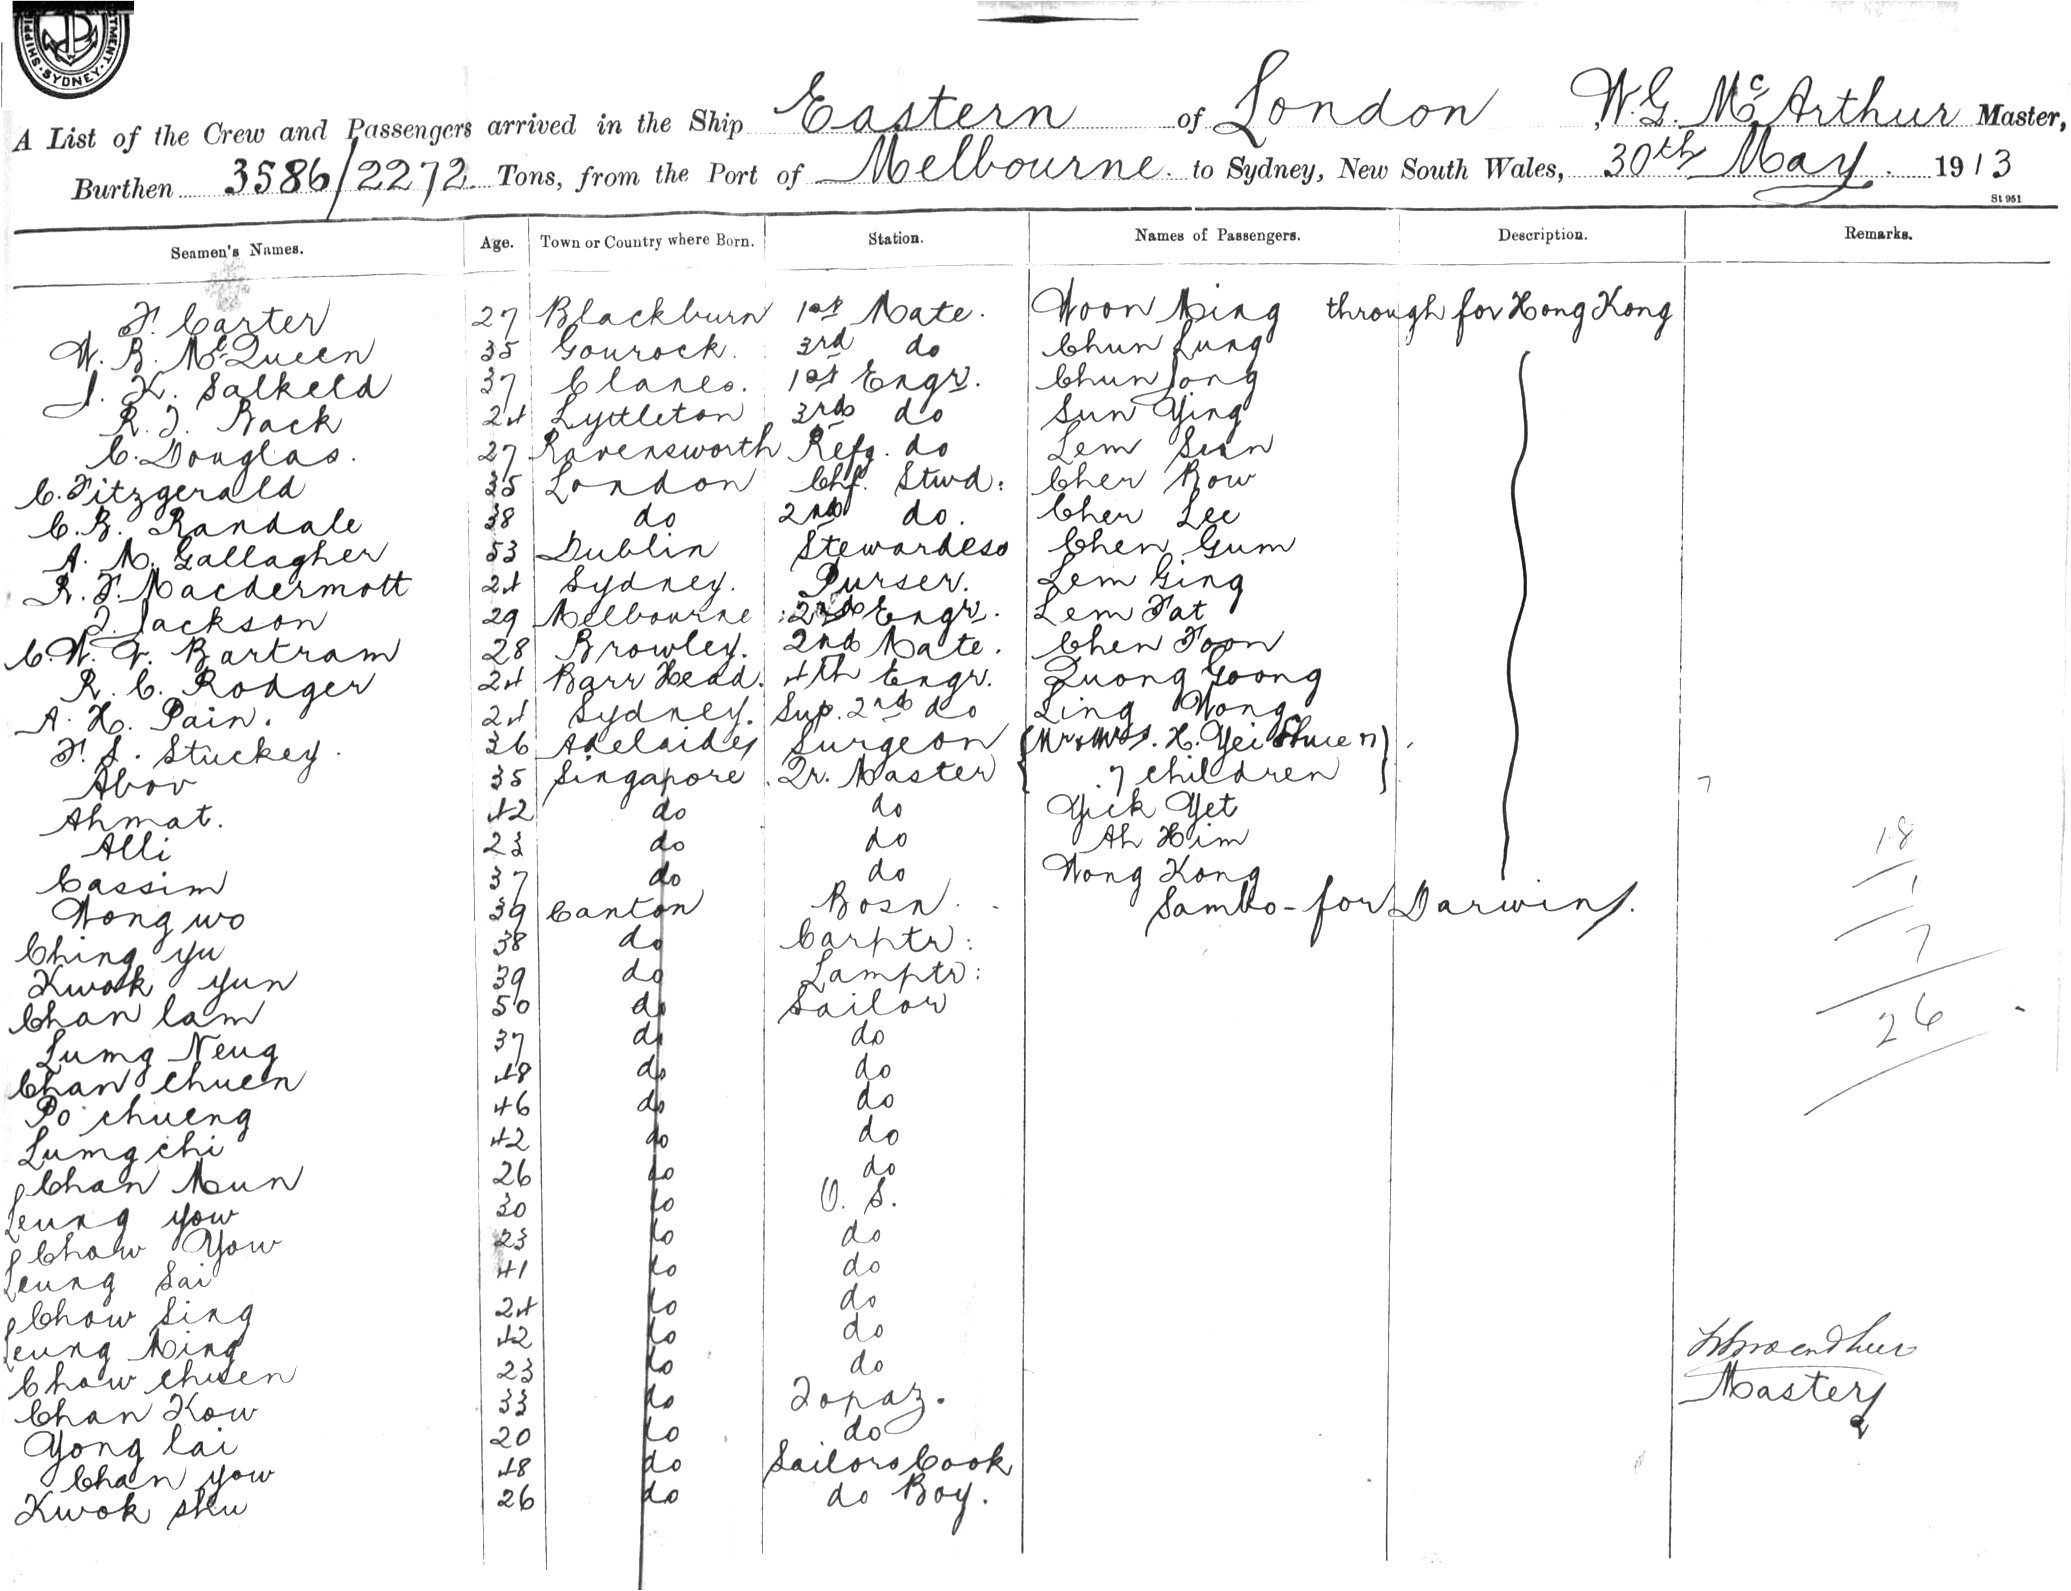 SHIPPING DEPARTMENT SYDNEY
A List of the Crew and Passengers arrived in the Ship Eastern of London W. G. McArthur Master,
Burthen 3586/2272 Tons, from the Port of Melbourne to Sydney, New South Wales, 30th May. 1913
St 951
Seamen's Names. Age. Town or Country where Born. Station. Names of Passengers. Description. Remarks.
F. Carter 27 Blackburn 1st Mate. Woon Ming through for Hong Kong
W. B. McQueen 35 Gourock. 3rd do Chun Lung
J. K. Salkeld 37 1st Engr. Chun Jong
R. J. Rack 24 Lyttleton 3rd do Sun Ying
C. Douglas. 27 Ravensworth Refg. do Lem Sun
C. Fitzgerald 35 London Chf. Stwd: Cher Row
C. B. Randale 38 do 2nd do. Cher Lee
A. M. Gallagher 53 Dublin Stewardess Chen Gum
R. F. Macdermott 24 Sydney. Purser. Lem Ging
J. Jackson 29 Melbourne 2nd Engr. Lem Fat
C. W. V. Bartram 28 Browley. 2nd Mate. Chen Foon
R. C. Rodger 24 Barr Head. 4th Engr. Quong Goong
A. H. Pain. 24 Sydney. Sup. 2nd do Ling Wong
F. S. Stuckey. 26 Adelaide Surgeon Mr & Mrs. H. Yei
Abov 35 Singapore Qr. Master 7 children 7
Ahmat. 42 do do Yick Yet
Alli 23 do do Ah Him 18
Cassim 37 do do Wong Kong 1
Wong wo 39 Canton Bosn. Sambo - for Darwin.
Ching yu 38 do Carptr: 7
Kwok yun 39 do Lamptr:
Chan lam 50 do Sailor 26
Lumg Neug 37 do do
Chan chuen 48 do do
Po chueng 46 do do
Lumg chi 42 do do
Chan Mun 26 do do
Leung yow 30 do O. S.
Chow Yow 23 do do
Leung Sai 41 do do
Chow Sing 24 do do
Leung Ming 42 do do
Chow chuen 23 do do Master
Chan Kow 33 do Topaz.
Yong lai 20 do do
Chan yow 48 do Sailors Cook
Kwok shu 26 do do Boy.